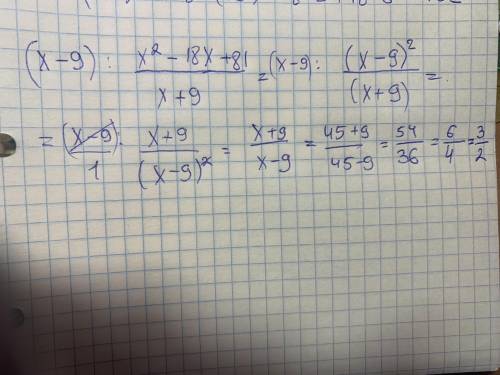 (x-9) : \frac{x^2 - 18x + 81}{x+9} = (x-9) : \frac{(x-9)^2}{(x+9)} =
= \frac{(x-9)}{1} \cdot \frac{x+9}{(x-9)^2} = \frac{x+9}{x-9} = \frac{45+9}{45-9} = \frac{54}{36} = \frac{6}{4} = \frac{3}{2}